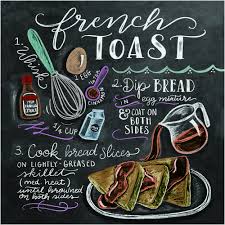 french
TOAST
1. Whisk
EGG
CINNAMON
1/4 CUP
2. Dip BREAD
in egg mixture
& COAT ON
BOTH
SIDES
3. Cook bread slices
ON LIGHTLY-GREASED
skillet
(med heat)
until browned
on both sides